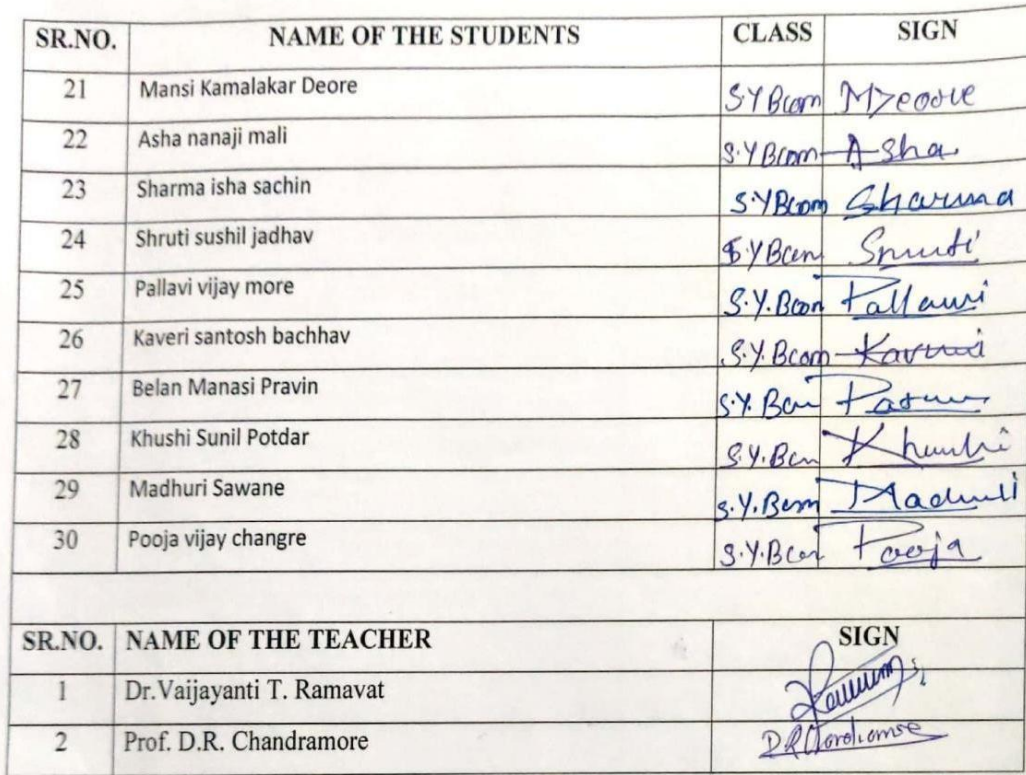 SR.NO. NAME OF THE STUDENTS CLASS SIGN
21 Mansi Kamalakar Deore S.Y Bcom MDeore
22 Asha nanaji mali S.Y Bcom Asha
23 Sharma isha sachin S.Y Bcom Sharma
24 Shruti sushil jadhav S.Y Bcom Shruti
25 Pallavi vijay more S.Y. Bcom Pallavi
26 Kaveri santosh bachhav S.Y. Bcom Kaveri
27 Belan Manasi Pravin S.Y. Bcom
28 Khushi Sunil Potdar S.Y. Bcom Khushi
29 Madhuri Sawane S.Y. Bcom Madhuri
30 Pooja vijay changre S.Y. Bcom Pooja
SR.NO. NAME OF THE TEACHER SIGN
1 Dr.Vaijayanti T. Ramavat
2 Prof. D.R. Chandramore